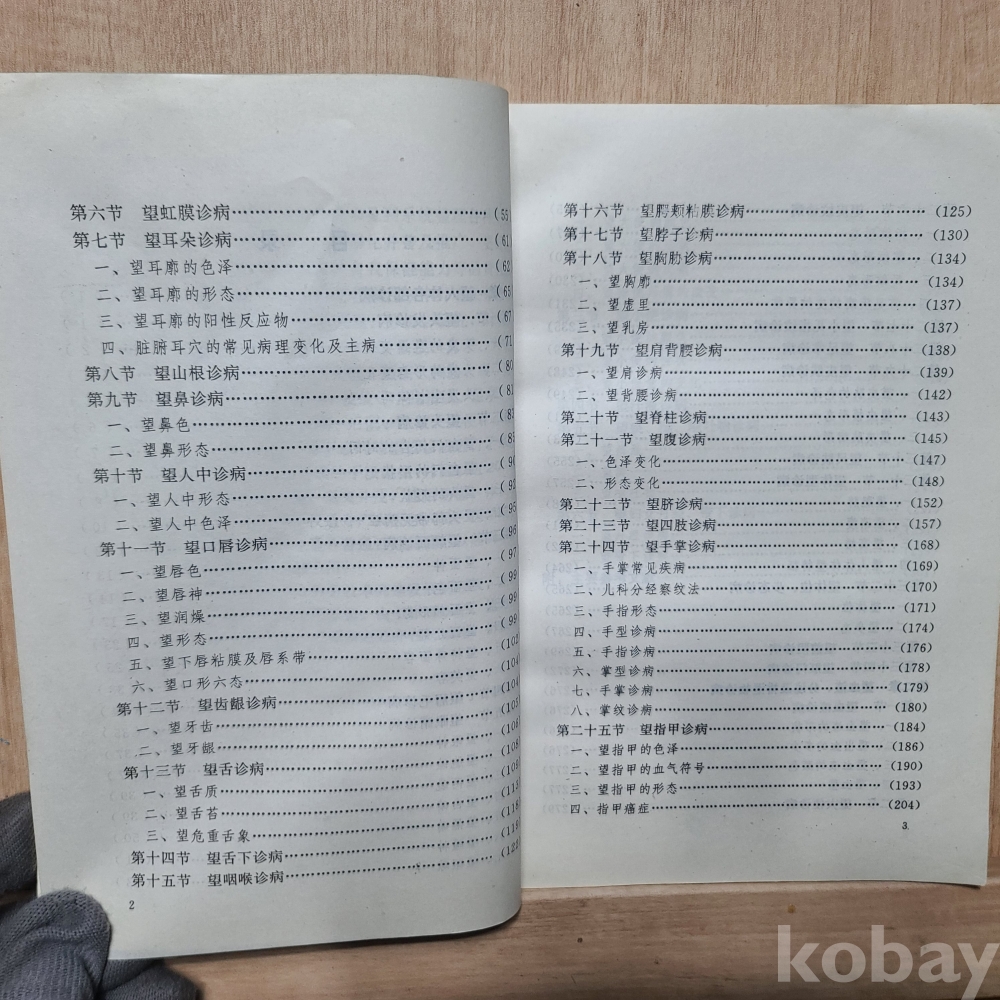 第六节 望虹膜诊病……(55
第七节 望耳朵诊病……(61
一、望耳廓的色泽……(62
二、望耳廓的形态……(65
三、望耳廓的阳性反应物……(67
四、脏腑耳穴的常见病理变化及主病……(71
第八节 望山根诊病……(80
第九节 望鼻诊病……(81
一、望鼻色……(81
二、望鼻形态……(85
第十节 望人中诊病……(90
一、望人中形态……(92
二、望人中色泽……(95
第十一节 望口唇诊病……(96
一、望唇色……(97
二、望唇神……(99
三、望润燥……(99
四、望形态……(99
五、望下唇粘膜及唇系带……(102
六、望口形六态……(104
第十二节 望齿龈诊病……(104
一、望牙齿……(105
二、望牙龈……(108
第十三节 望舌诊病……(108
一、望舌质……(109
二、望舌苔……(113
三、望危重舌象……(118
第十四节 望舌下诊病……(119
第十五节 望咽喉诊病……(122
2
第十六节 望腭颊粘膜诊病……(125)
第十七节 望脖子诊病……(130)
第十八节 望胸胁诊病……(134)
一、望胸廓……(134)
二、望虚里……(137)
三、望乳房……(137)
第十九节 望肩背腰诊病……(138)
一、望肩诊病……(139)
二、望背腰诊病……(142)
第二十节 望脊柱诊病……(143)
第二十一节 望腹诊病……(145)
一、色泽变化……(147)
二、形态变化……(148)
第二十二节 望脐诊病……(152)
第二十三节 望四肢诊病……(157)
第二十四节 望手掌诊病……(168)
一、手掌常见疾病……(169)
二、儿科分经察纹法……(170)
三、手指形态……(171)
四、手型诊病……(174)
五、手指诊病……(176)
六、掌型诊病……(178)
七、手掌诊病……(179)
八、掌纹诊病……(180)
第二十五节 望指甲诊病……(184)
一、望指甲的色泽……(186)
二、望指甲的血气符号……(190)
三、望指甲的形态……(193)
四、指甲癌症……(204)
3
kobay